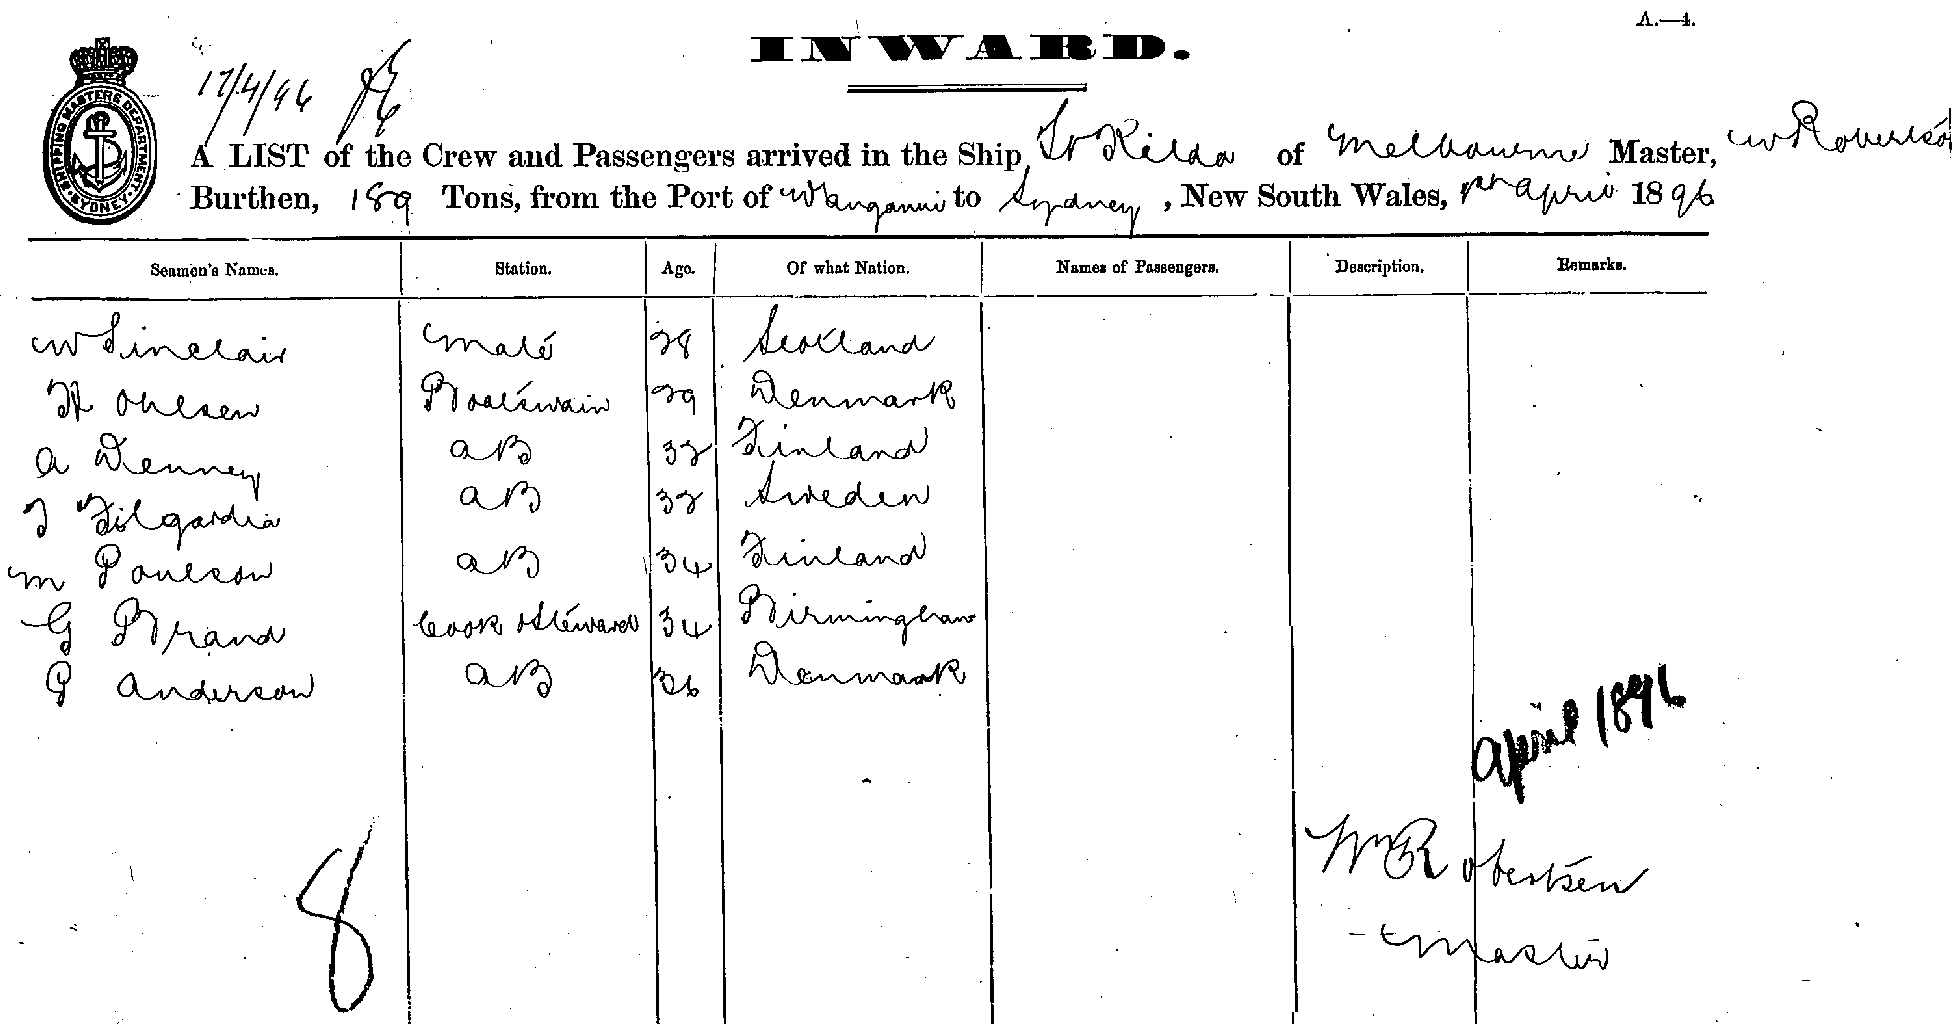 A.—4.
INWARD.
17/4/96
SHIPPING MASTERS DEPARTMENT SYDNEY
A LIST of the Crew and Passengers arrived in the Ship St Kilda of Melbourne Master, W Robertson
Burthen, 189 Tons, from the Port of Wanganui to Sydney, New South Wales, April 1896
Seamen's Names. Station. Age. Of what Nation. Names of Passengers. Description. Remarks.
W Sinclair Mate 28 Scotland
H Ohlsen Boatswain 29 Denmark
A Denney AB 32 Finland
AB 32 Sweden
M Poulson AB 34 Finland
G Brand Cook & Steward 34 Birmingham
P Anderson AB 36 Denmark
April 1896
8
Wm Robertson
Master